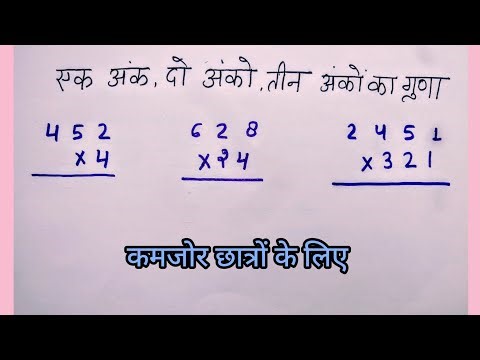 एक अंक, दो अंको, तीन अंकों का गुणा
452 628 2451
×4 ×24 ×321
कमजोर छात्रों के लिए